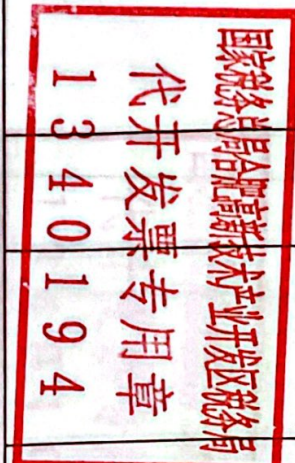 国家税务总局合肥高新技术产业开发区税务局
代开发票专用章
1340194